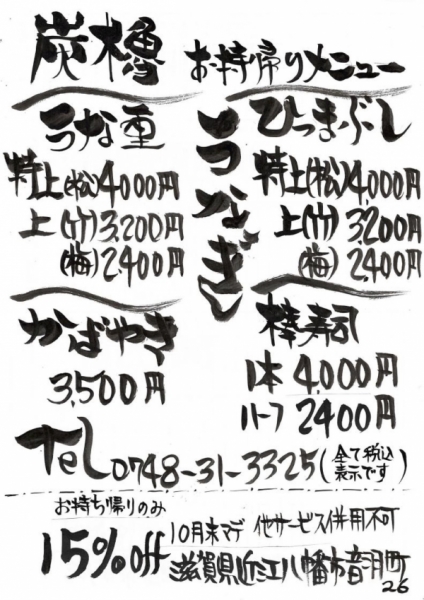 炭櫓 お持帰りメニュー
うなぎ
うな重
特上(松)4,000円
上(竹)3,200円
(梅)2,400円
ひつまぶし
特上(松)4,000円
上(竹)3,200円
(梅)2,400円
かばやき
3,500円
棒寿司
1本 4,000円
ハーフ 2400円
Tel 0748-31-3325(全て税込表示です)
お持ち帰りのみ
15%off
10月末マデ 他サービス併用不可
滋賀県近江八幡市音羽町
26